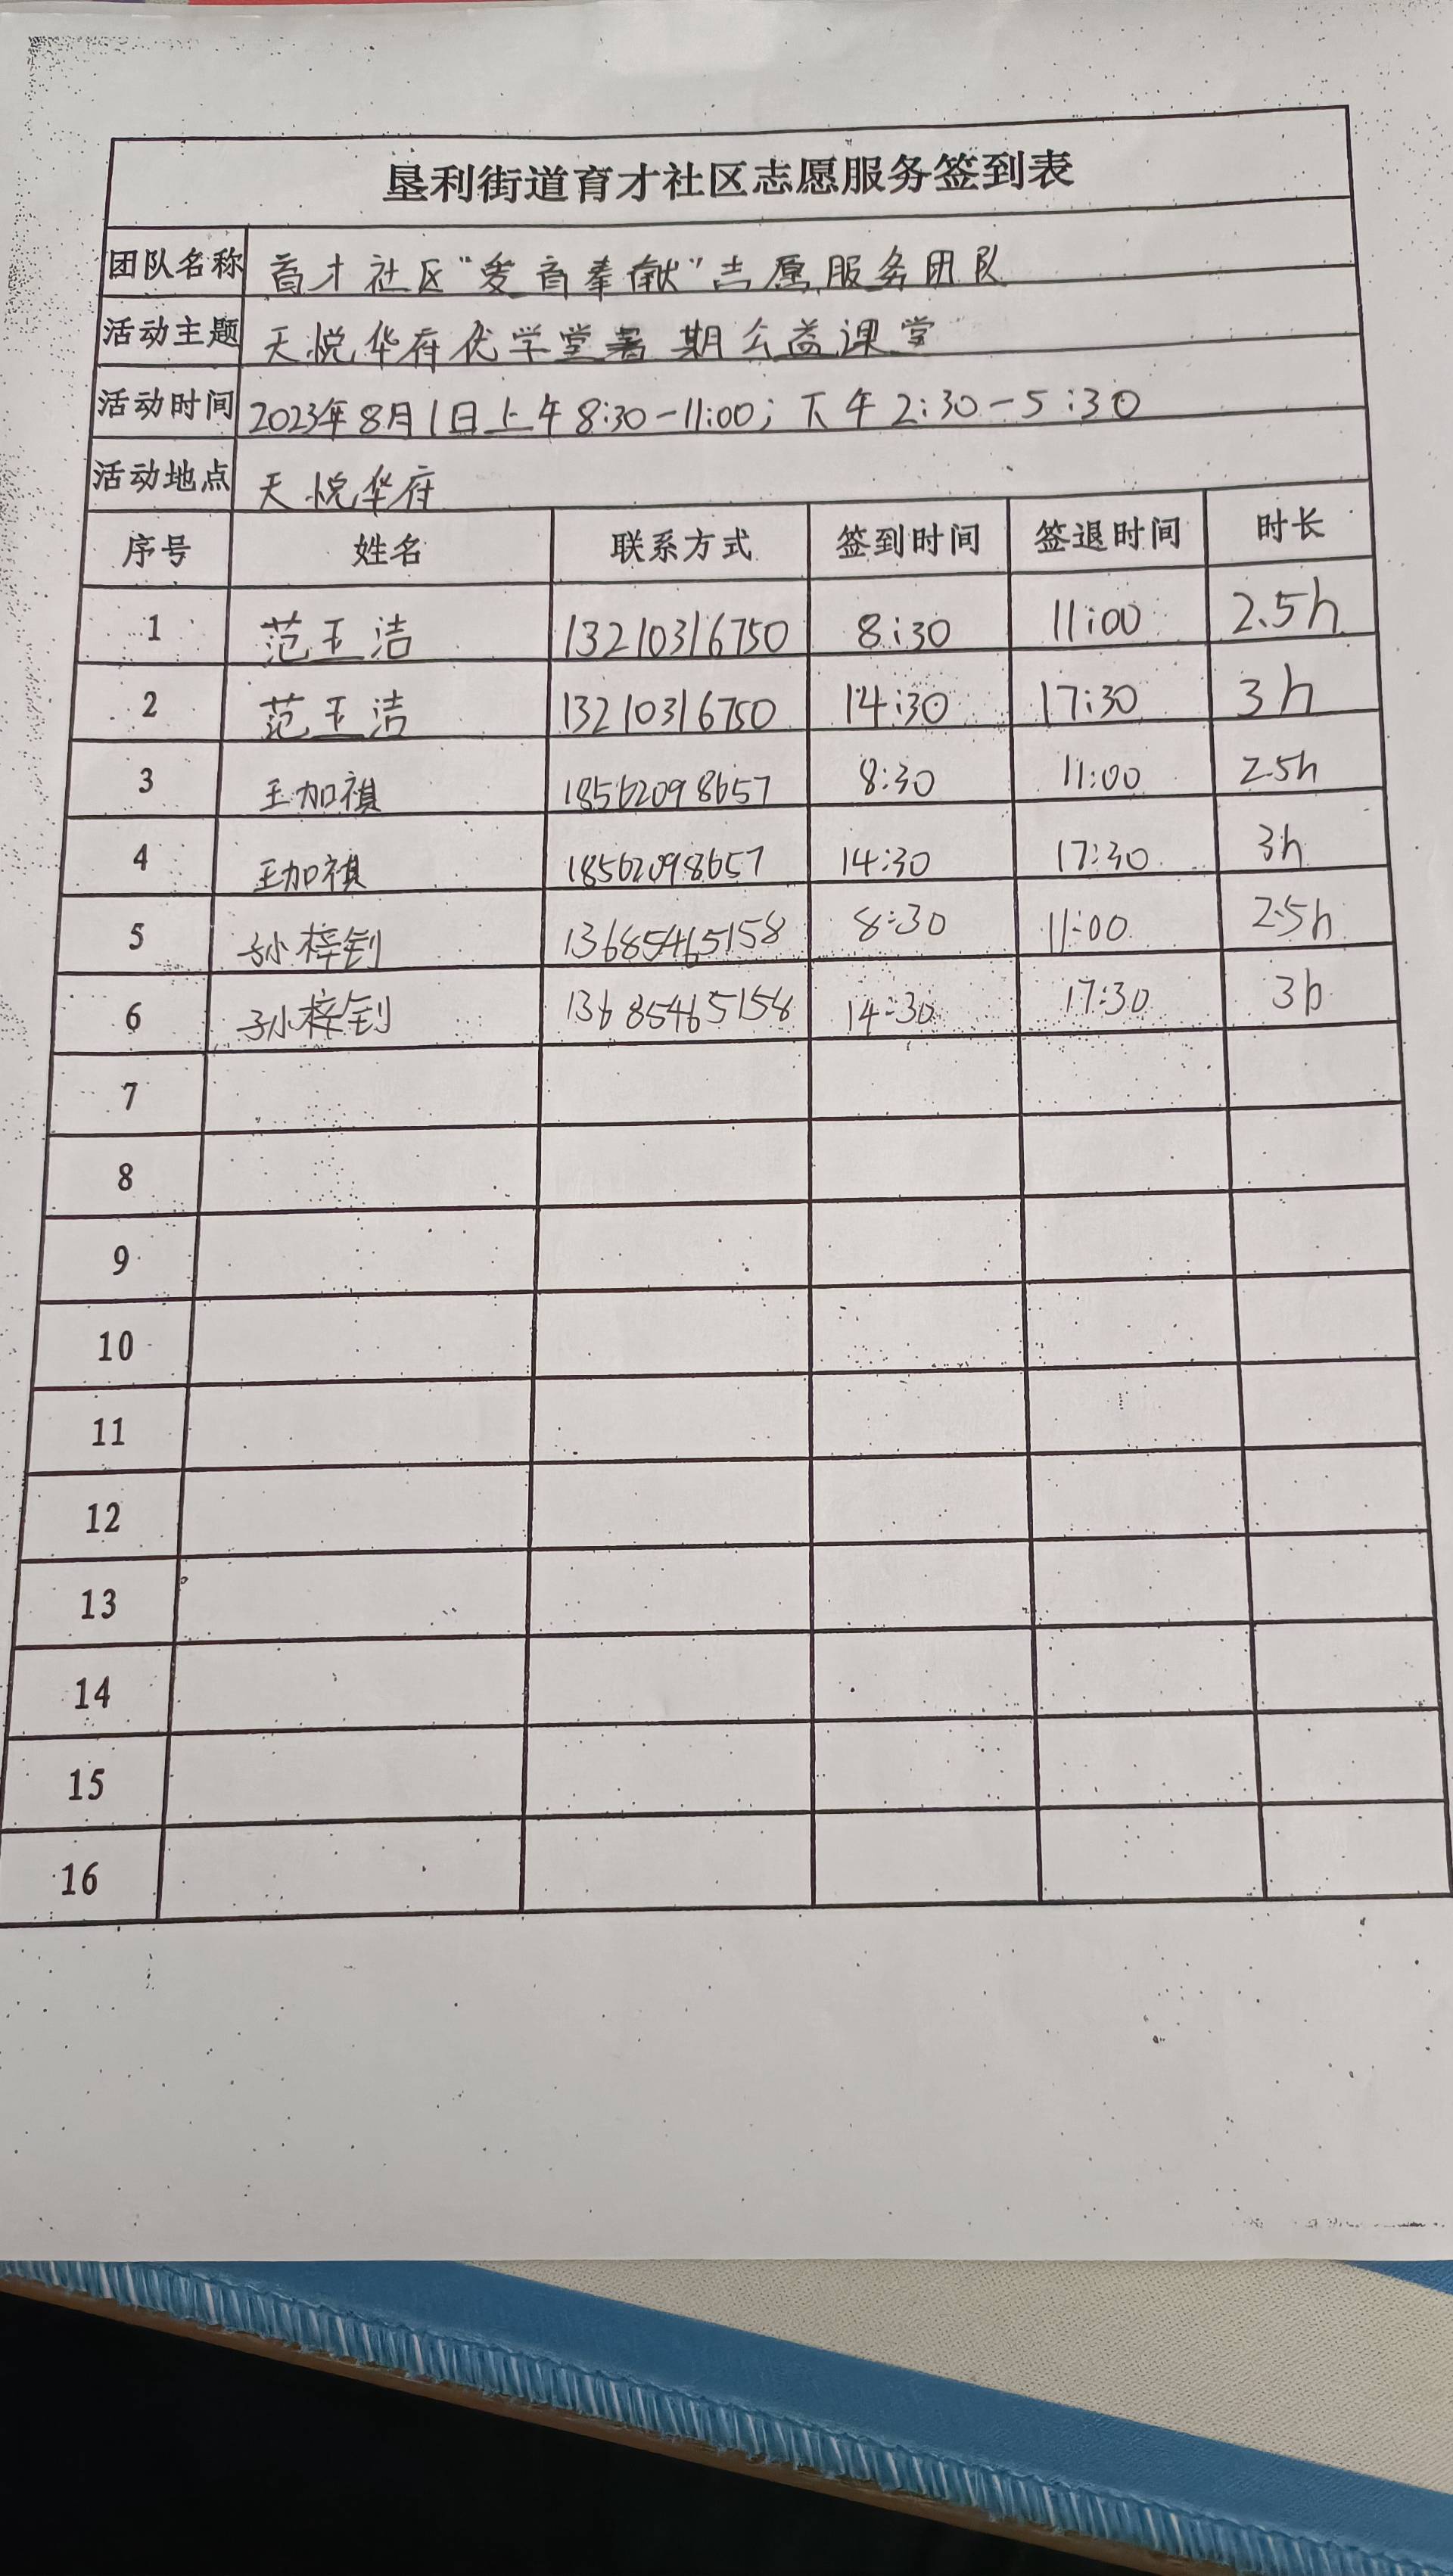 垦利街道育才社区志愿服务签到表
团队名称 育才社区“爱育奉献”志愿服务团队
活动主题 天悦华府优学堂暑期公益课堂
活动时间 2023年8月1日上午8:30-11:00；下午2:30-5:30
活动地点 天悦华府
序号 姓名 联系方式 签到时间 签退时间 时长
1 范玉洁 13210316750 8:30 11:00 2.5h
2 范玉洁 13210316750 14:30 17:30 3h
3 王加祺 18562098657 8:30 11:00 2.5h
4 王加祺 18562098657 14:30 17:30 3h
5 孙梓钊 13685465158 8:30 11:00 2.5h
6 孙梓钊 13685465158 14:30 17:30 3h
7
8
9
10
11
12
13
14
15
16